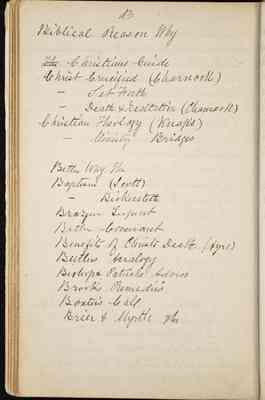 13
Biblical Reason Why
The Christians Guide
Christ Crucified (Charnock)
- Set Forth
- Death & (Charnock)
Christian Theology (Knapp)
- Ministry Bridges
Better Way The
Baptism (Scott)
- Bickersteth
Brazen Serpent
Better Covenant
Benefits of Christs Death
Butlers Analogy
Bishops Pastoral Advice
Brooks Remedies
Baxters Call
Brier & Myrtle The